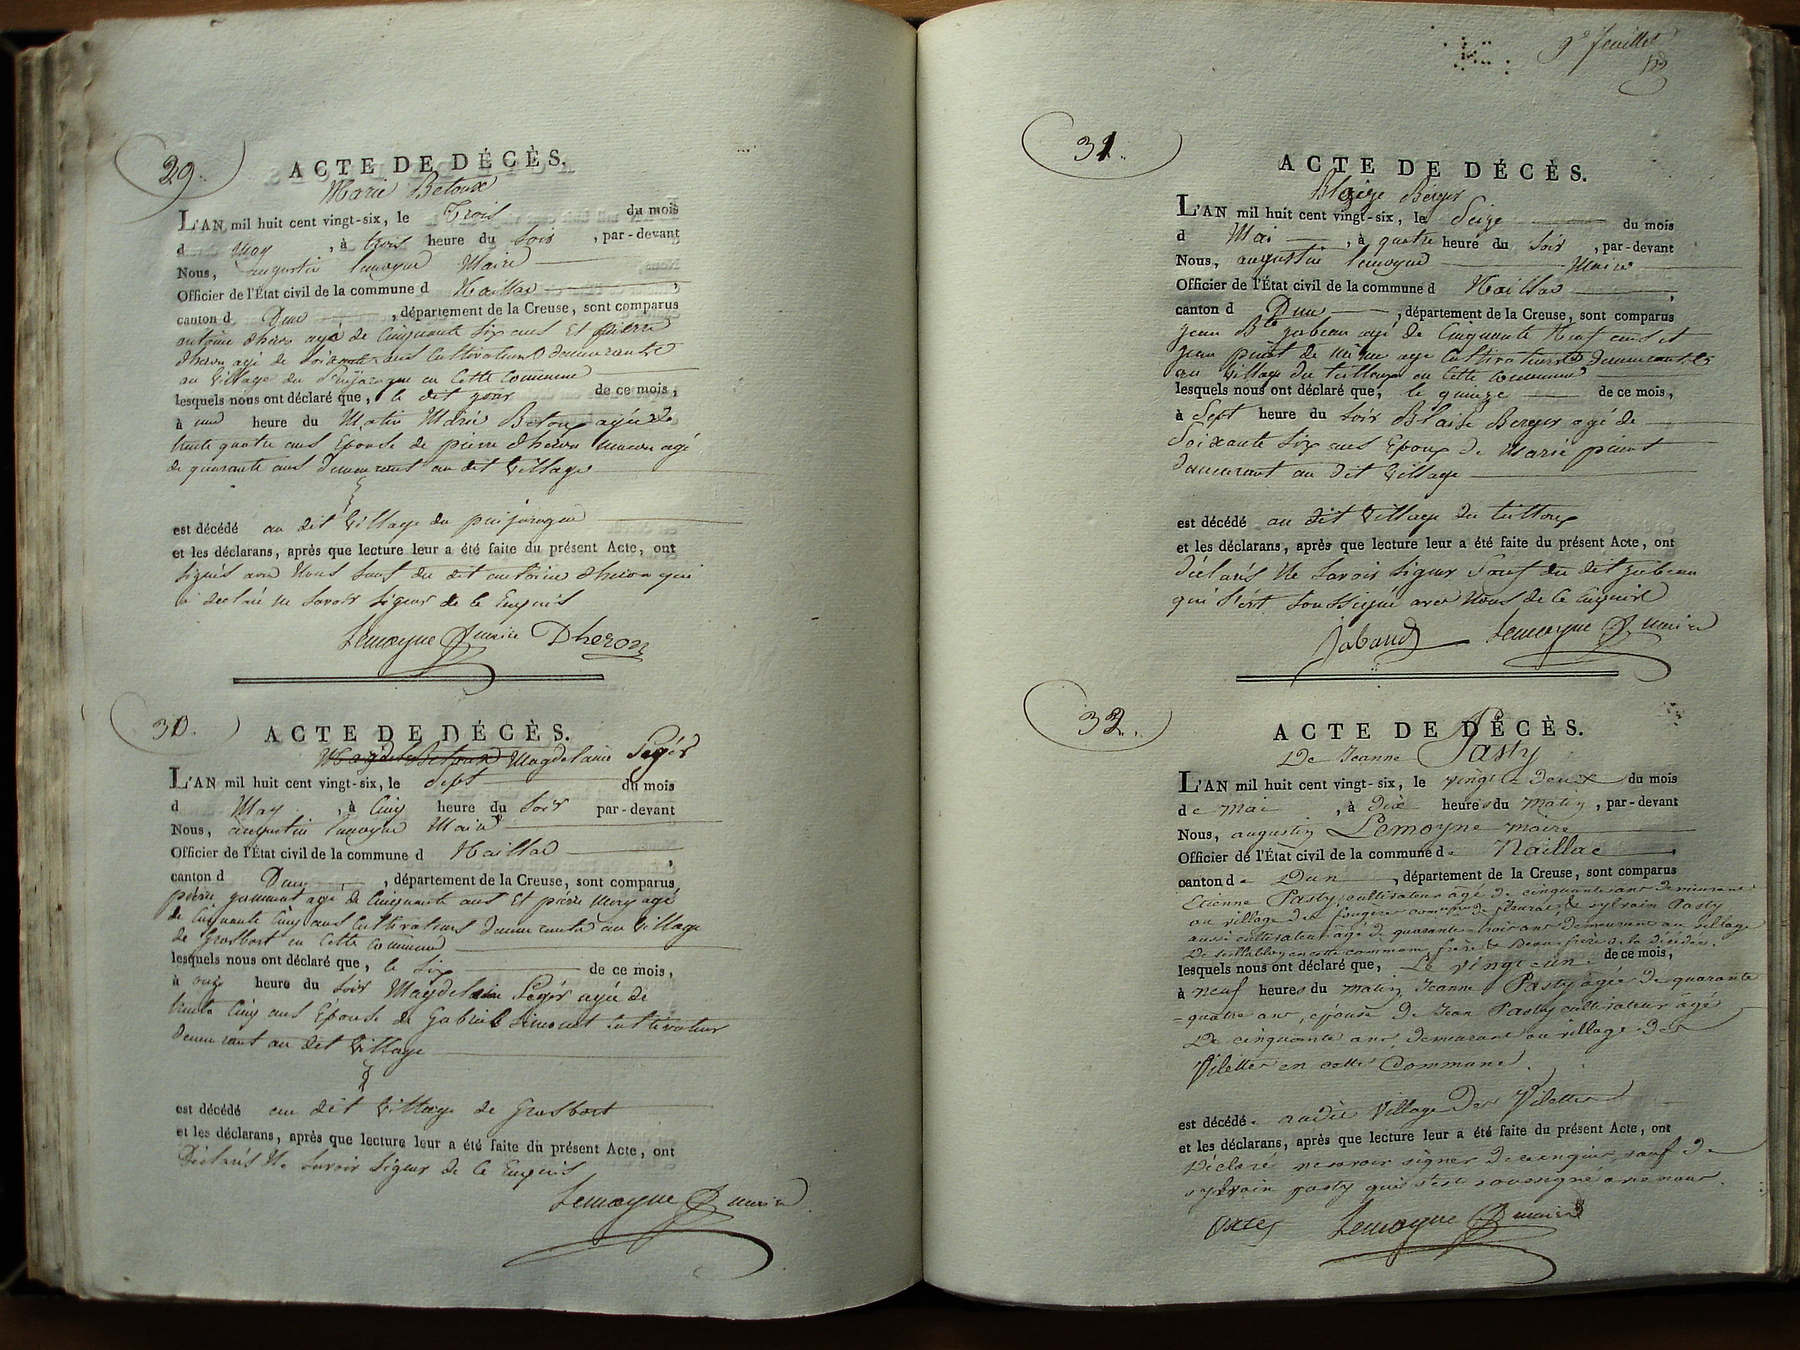 29.
ACTE DE DÉCÈS.
Marie Betoux
L'AN mil huit cent vingt-six, le Trois du mois
d May, à trois heure du Soir, par-devant
Nous, augustin Lemoyne Maire
Officier de l'État civil de la commune d Naillac,
canton d Dun, département de la Creuse, sont comparus
antoine dheron agé de Cinquante Six ans Et pierre
dheron agé de Soixante ans Cultivateurs demeurants
au Village du Puyjarogne en Cette Commune
lesquels nous ont déclaré que, le dit jour de ce mois,
à une heure du Matin Marie Betoux agée de
trente quatre ans Epouse de pierre dheron Macon agé
de quarante ans demeurant au dit Village
est décédé au dit Village du
et les déclarans, après que lecture leur a été faite du présent Acte, ont
Signés avec Nous Sauf du dit antoine dheron qui
a declaré ne Savoir Signer de le Enquis
Lemoyne maire Dheron
30.
ACTE DE DÉCÈS.
Magdelaine Segér
L'AN mil huit cent vingt-six, le Sept du mois
d May, à Cinq heure du Soir par-devant
Nous, augustin Lemoyne Maire
Officier de l'État civil de la commune d Naillac,
canton d Dun, département de la Creuse, sont comparus
pierre agé de Cinquante ans Et pierre agé
de Cinquante Cinq ans Cultivateurs demeurants au Village
de Grosbost en Cette Commune
lesquels nous ont déclaré que, le Six de ce mois,
à onze heure du Soir Magdelaine Segér agée de
trente Cinq ans Épouse de Gabriel Simonet Cultivateur
demeurant au dit Village
est décédé au dit Village de Grosbost
et les déclarans, après que lecture leur a été faite du présent Acte, ont
Déclarés Ne Savoir Signer de Ce Enquis
Lemoyne maire
9e feuillet
31.
ACTE DE DÉCÈS.
Blaize Berger
L'AN mil huit cent vingt-six, le Seize du mois
d Mai, à quatre heure du Soir, par-devant
Nous, augustin Lemoyne Maire
Officier de l'État civil de la commune d Naillac,
canton d Dun, département de la Creuse, sont comparus
Jean Bte Jabeau agé de Cinquante Neuf ans et
Jean pinot de même age Cultivateurs demeurantes
au Village du en Cette Commune
lesquels nous ont déclaré que, le quinze de ce mois,
à Sept heure du Soir Blaise Berger agé de
Soixante Six ans Epoux de Marie
demeurant au dit Village
est décédé au dit Village du
et les déclarans, après que lecture leur a été faite du présent Acte, ont
déclarés Ne Savoir Signer Sauf du dit Jabeau
qui S'est Soussigné avec Nous de Ce enquis
Jabaud Lemoyne maire
32.
ACTE DE DÉCÈS.
De Jeanne Pasty
L'AN mil huit cent vingt-six, le vingt-deux du mois
de mai, à Dix heures du matin, par-devant
Nous, augustin Lemoyne maire
Officier de l'État civil de la commune de Naillac,
canton de Dun, département de la Creuse, sont comparus
Etienne Pasty, cultivateur âgé de cinquante ans demeurant
au village des fougeres commune de fleurat, & sylvain Pasty
aussi cultivateur âgé de quarante-trois ans demeurant au village
De en cette commune, frère & Beau-frère de la décédée.
lesquels nous ont déclaré que, Le vingt-un de ce mois,
à neuf heures du matin Jeanne Pasty âgée de quarante
= quatre ans, épouse de Jean Pasty cultivateur agé
De cinquante ans, demeurant au village des
Vilettes en cette Commune.
est décédée audit Village Des Vilettes
et les déclarans, après que lecture leur a été faite du présent Acte, ont
Déclaré ne savoir signer De ce enquis, sauf de
sylvain pasty qui s'est soussigné avec nous.
Lemoyne maire